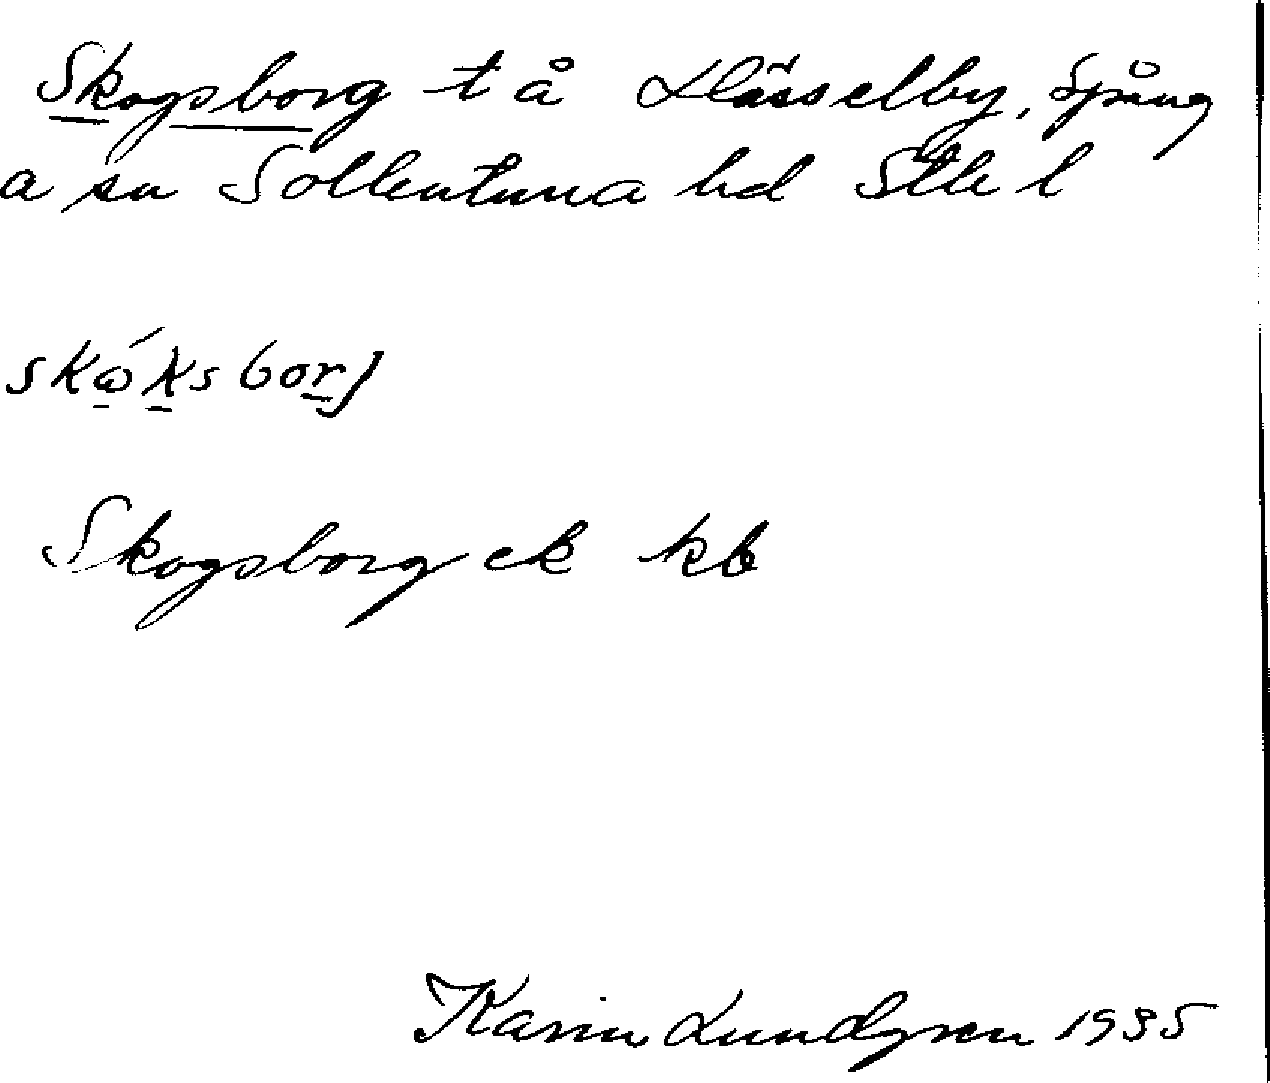 Skogsborg t å Hässelby, Spång
a sn Sollentuna hd Sthl l
skώksborj
Skogsborg ek kb
Karin Lundgren 1935